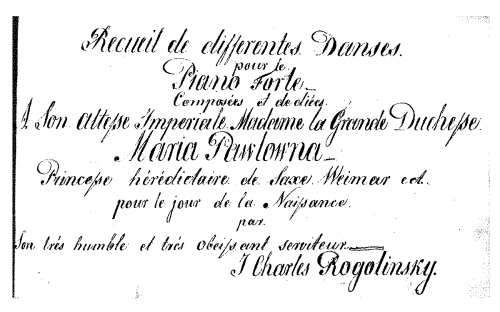 Recueil de differentes Danses.
pour le
Piano Forte
Composées et dediées
A Son Altesse Imperiale Madame la Grande Duchesse
Maria Pawlowna
Princesse héréditaire de Saxe Weimar ect.
pour le jour de la Naissance
par
Son trés humble et trés obeissant serviteur
J Charles Rogolinsky.